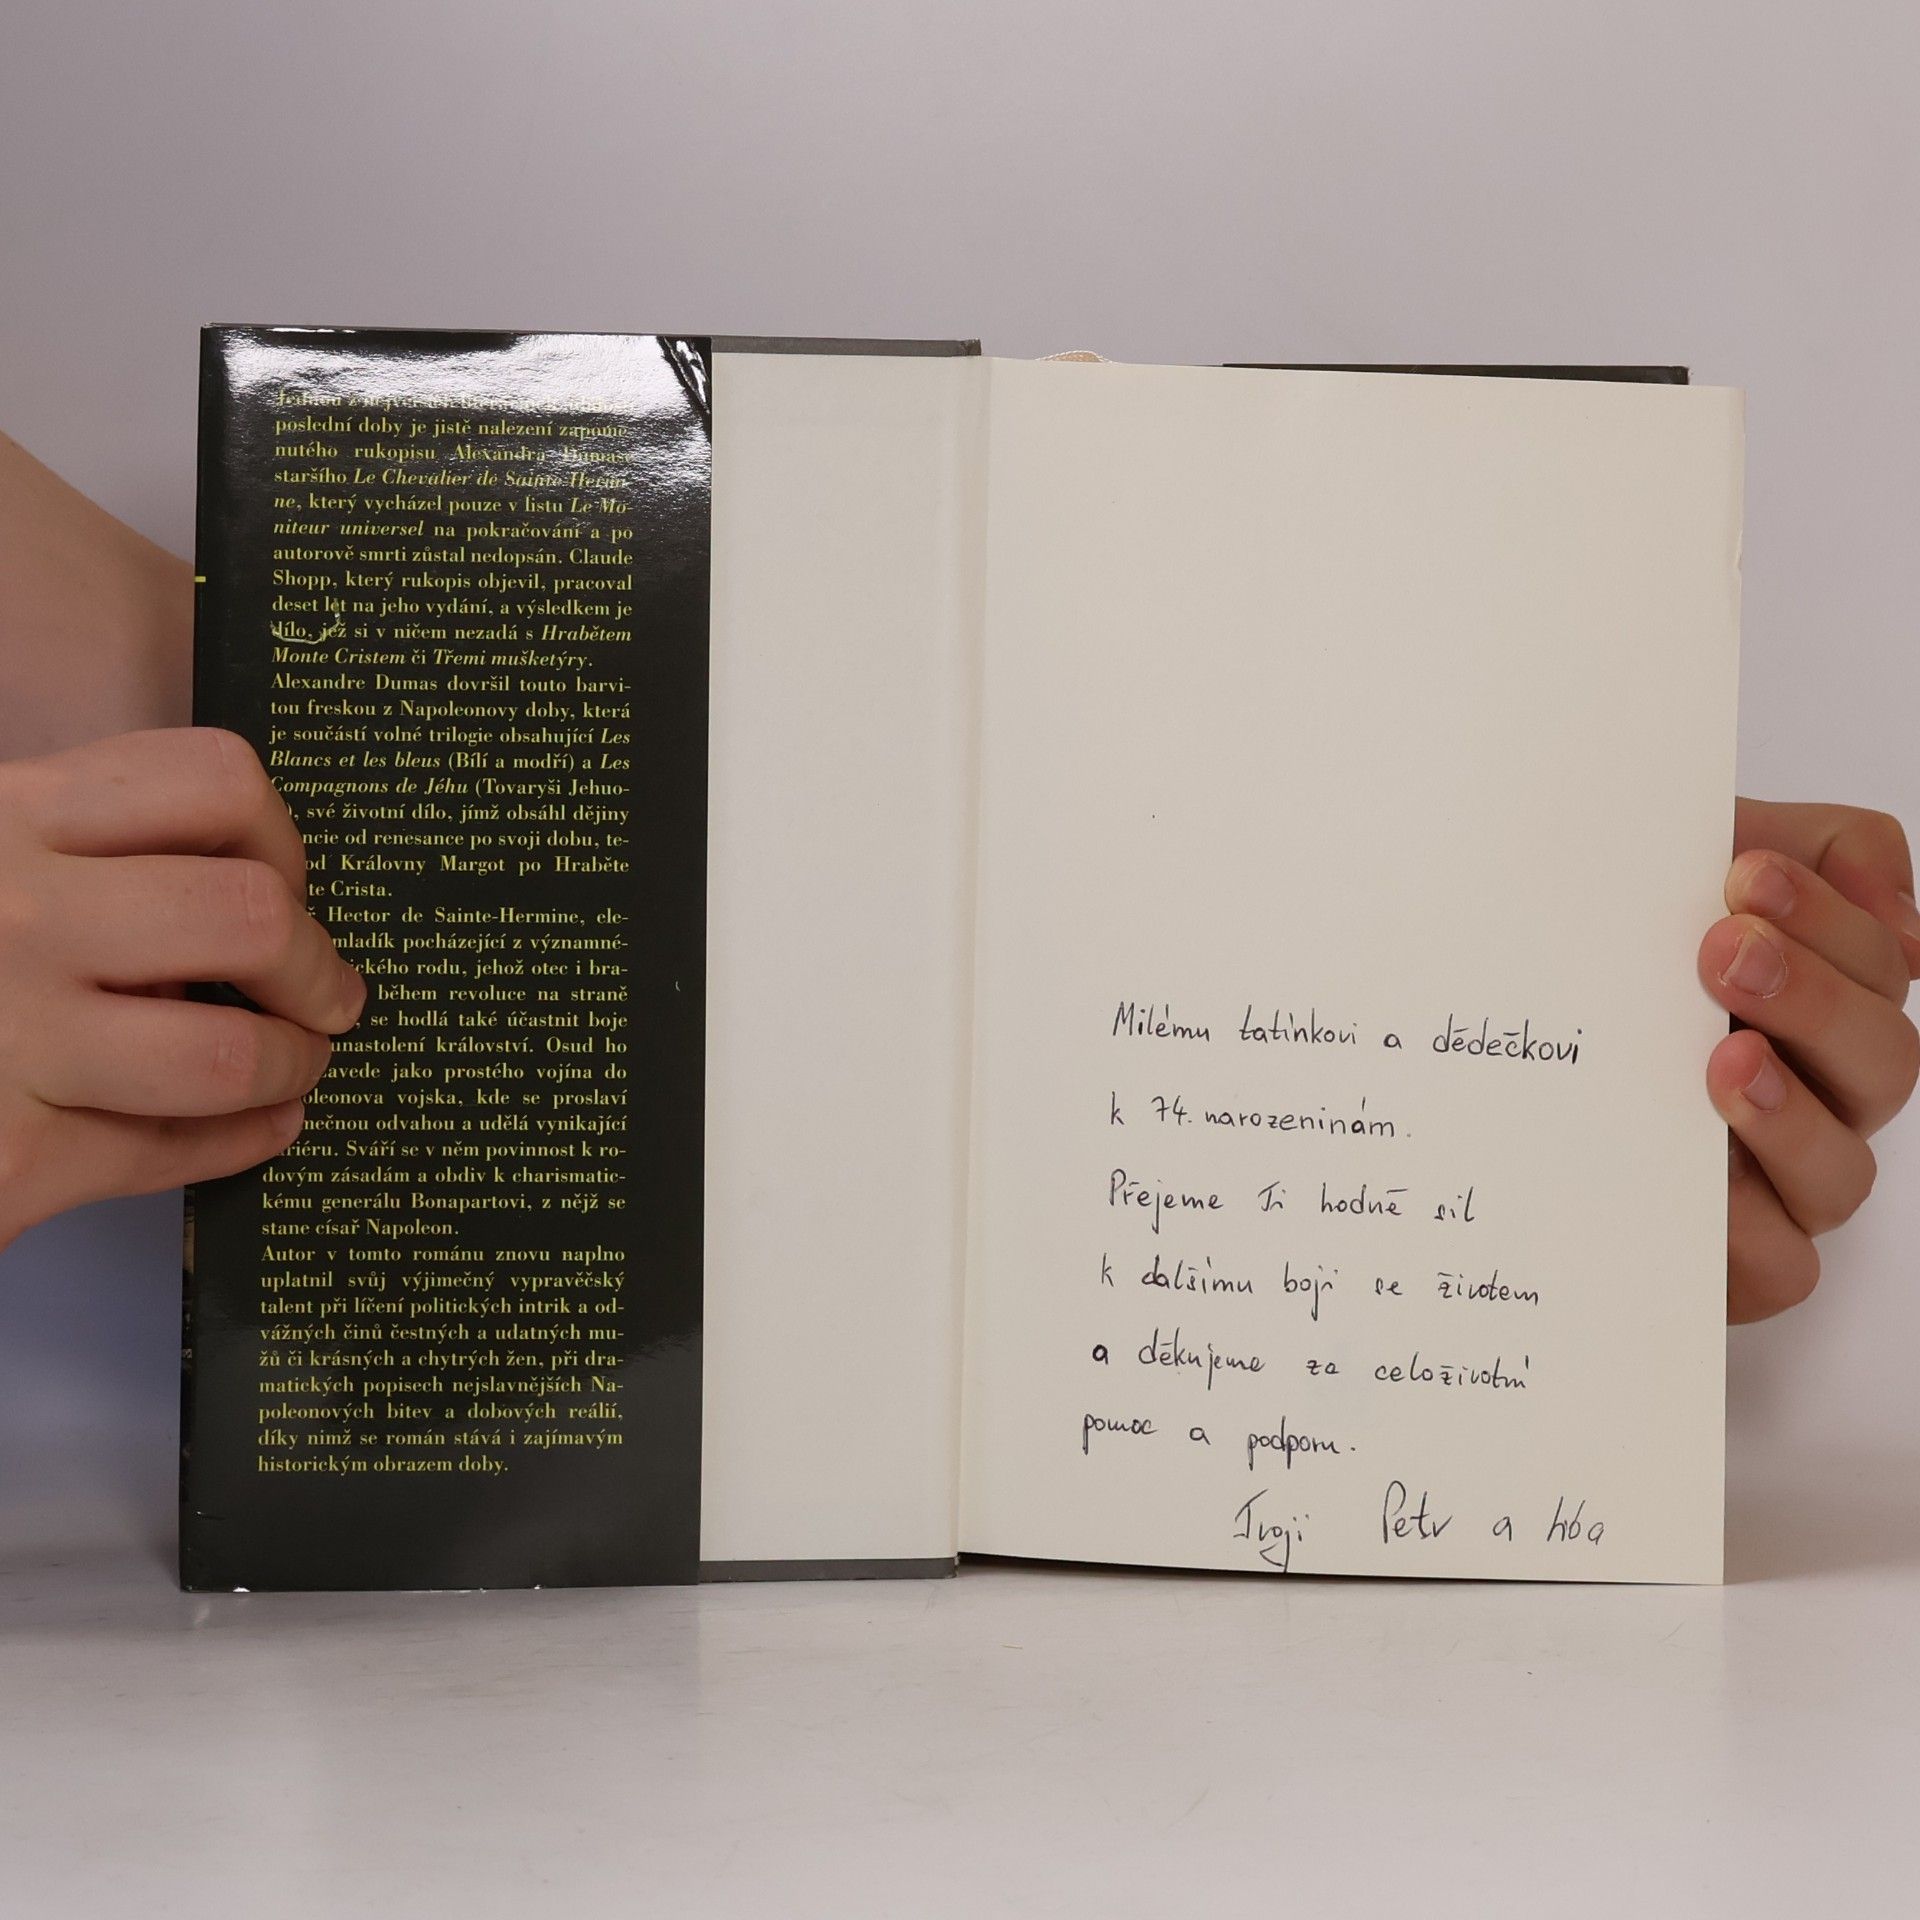 Jednou z
poslední doby je jistě nalezení zapome-
nutého rukopisu Alexandra Dumase
staršího Le Chevalier de Sainte-Hermi-
ne, který vycházel pouze v listu Le Mo-
niteur universel na pokračování a po
autorově smrti zůstal nedopsán. Claude
Shopp, který rukopis objevil, pracoval
deset let na jeho vydání, a výsledkem je
dílo, jež si v ničem nezadá s Hrabětem
Monte Cristem či Třemi mušketýry.
Alexandre Dumas dovršil touto barvi-
tou freskou z Napoleonovy doby, která
je součástí volné trilogie obsahující Les
Blancs et les bleus (Bílí a modří) a Les
Compagnons de Jéhu (Tovaryši Jehuo-
), své životní dílo, jímž obsáhl dějiny
ncie od renesance po svoji dobu, te-
od Královny Margot po Hraběte
te Crista.
Hector de Sainte-Hermine, ele-
mladík pocházející z významné-
ického rodu, jehož otec i bra-
během revoluce na straně
, se hodlá také účastnit boje
unastolení království. Osud ho
avede jako prostého vojína do
oleonova vojska, kde se proslaví
nečnou odvahou a udělá vynikající
riéru. Sváří se v něm povinnost k ro-
dovým zásadám a obdiv k charismatic-
kému generálu Bonapartovi, z nějž se
stane císař Napoleon.
Autor v tomto románu znovu naplno
uplatnil svůj výjimečný vypravěčský
talent při líčení politických intrik a od-
vážných činů čestných a udatných mu-
žů či krásných a chytrých žen, při dra-
matických popisech nejslavnějších Na-
poleonových bitev a dobových reálií,
díky nimž se román stává i zajímavým
historickým obrazem doby.
Milému tatínkovi a dědečkovi
k 74. narozeninám.
Přejeme Ti hodně sil
k dalšímu boji se životem
a děkujeme za celoživotní
pomoc a podporu.
Tvoji Petr a